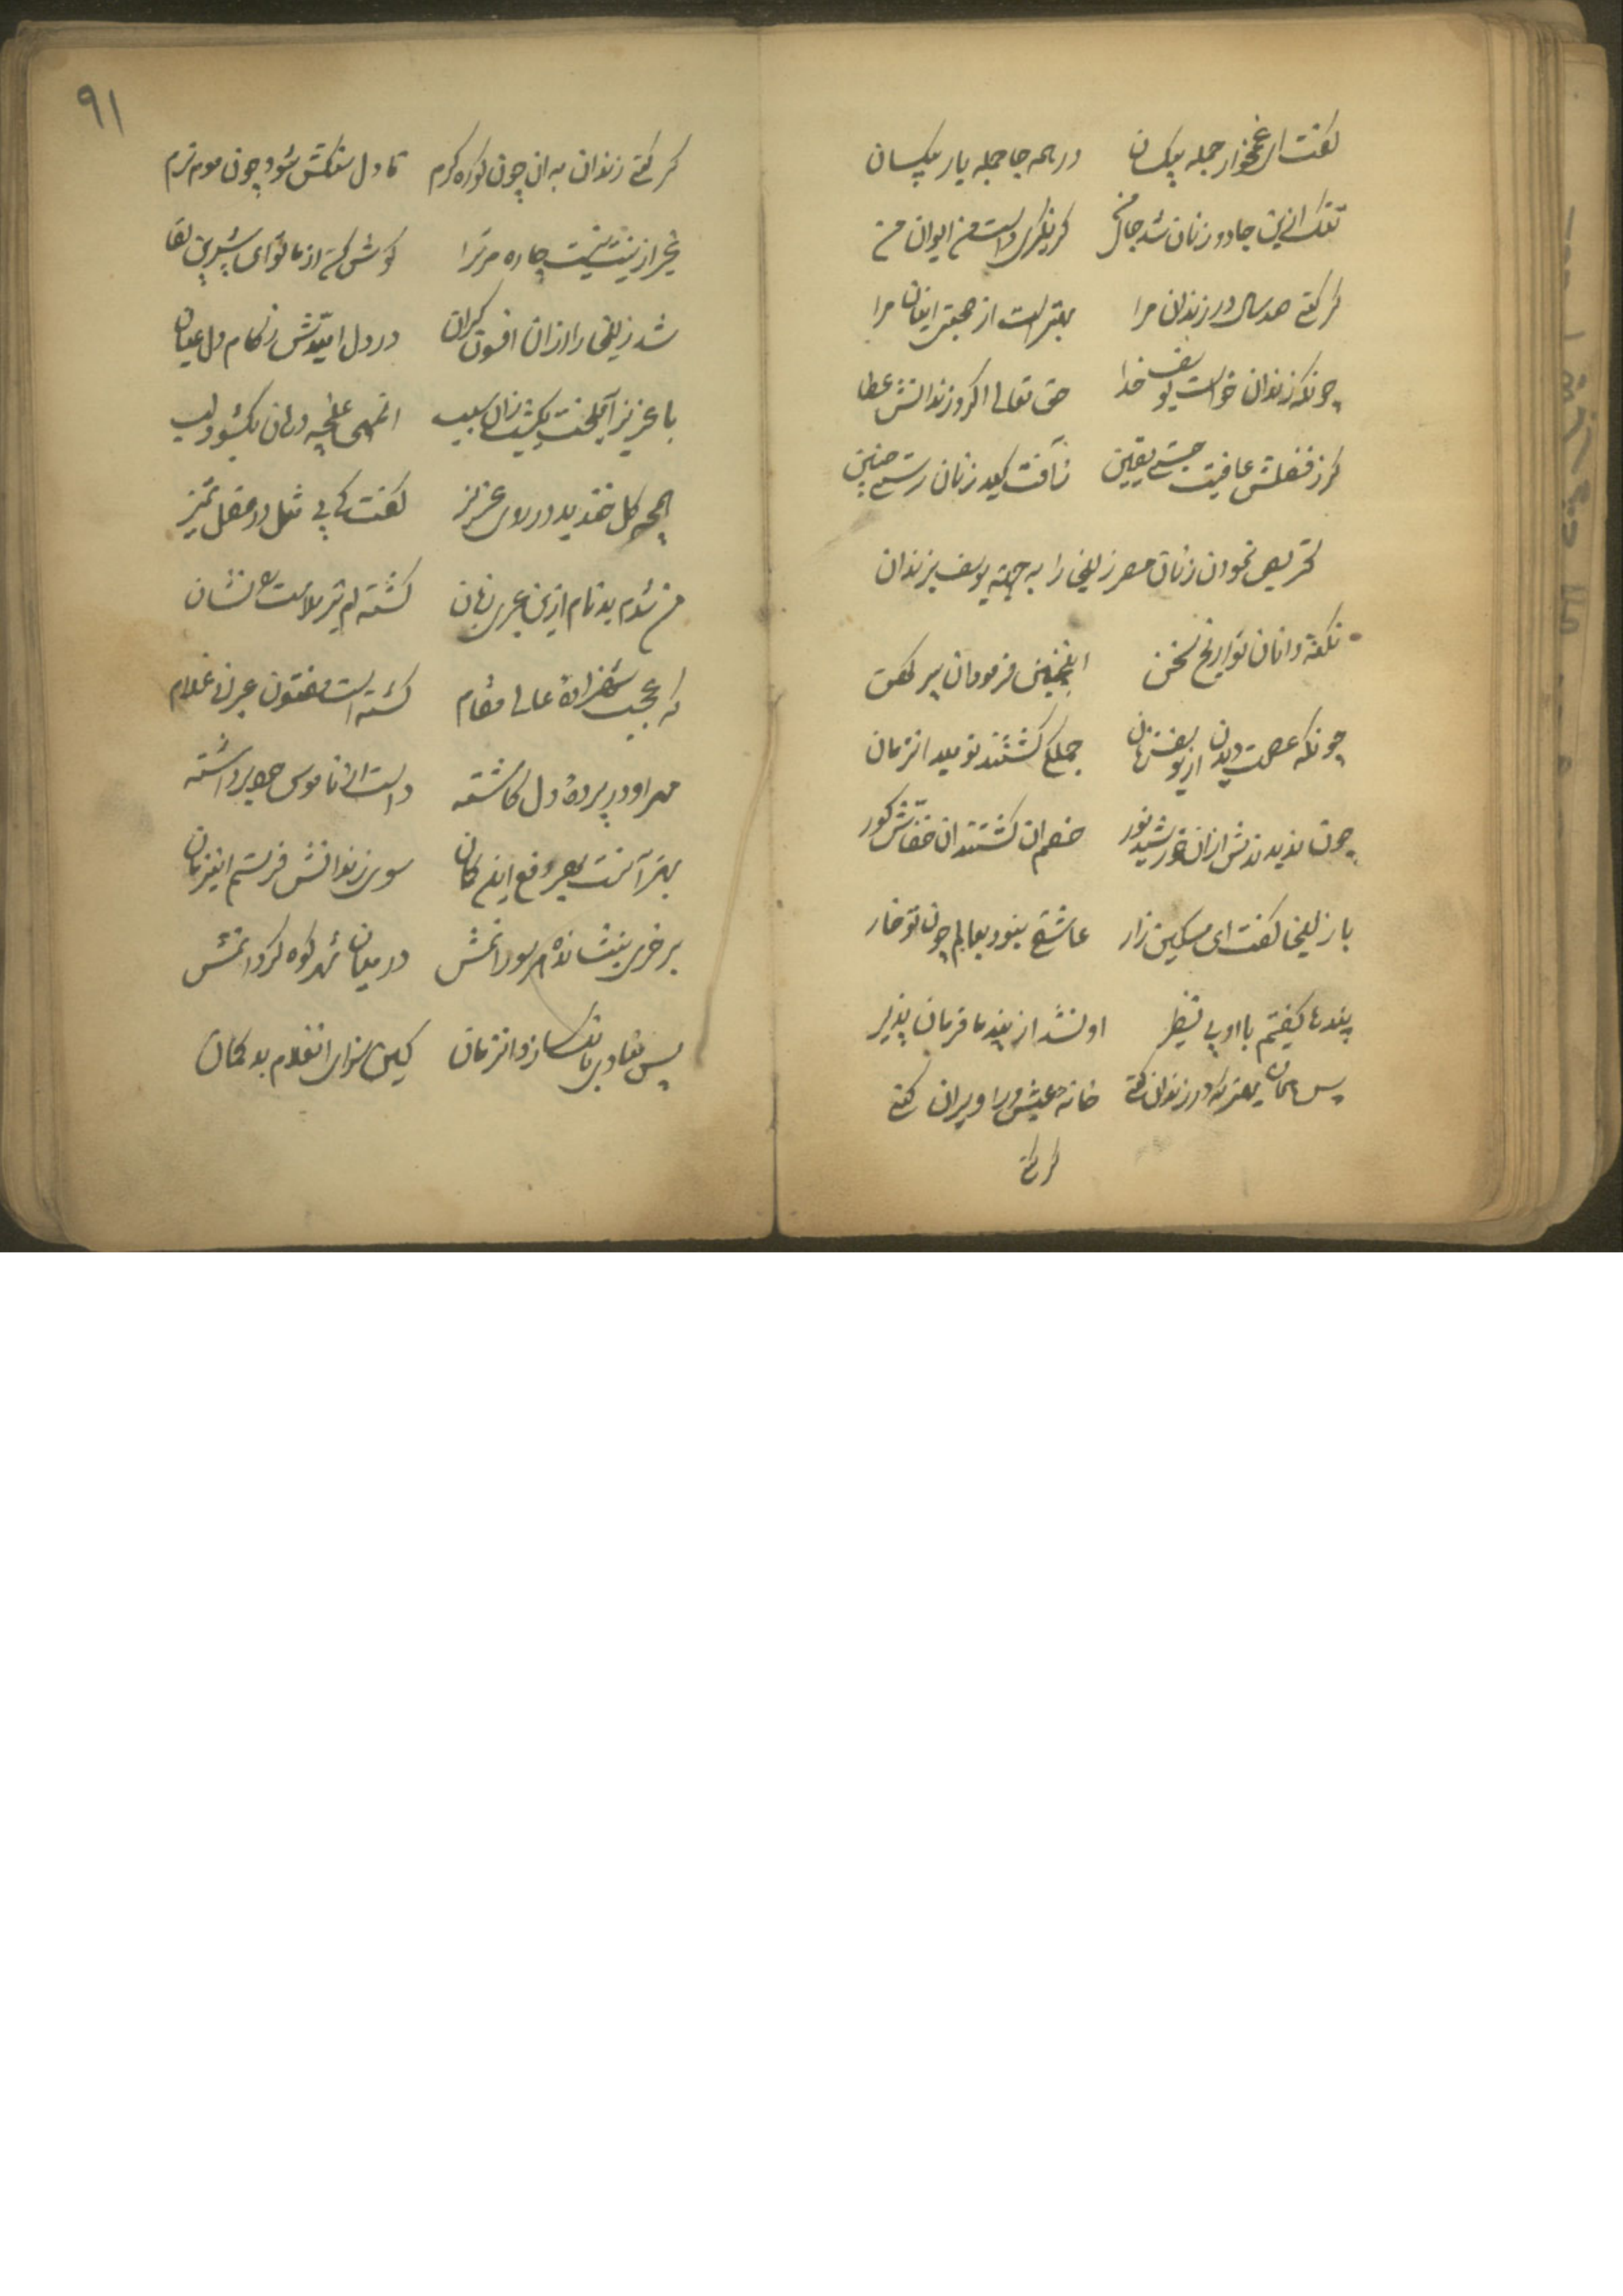 گفت ای غمخوار جمله بیکسان در همه جا جمله یار بیکسان
تنک ازین جادو زنان شد جان من کر نکری است من ایوان من
کر کنی صد سال در زندان مرا بهتر است از صحبت اینان مرا
چونکه زندان خواست یوسف از خدا حق تعالی کرد زندانش عطا
کر ز فضلش عافیت جستی یقین زآفت کید زنان رستی چنین
تحریص نمودن زنان مصر زلیخا را به جهة یوسف بزندان
نکته دانان تواریخ سخن اینچنین فرمودان پیر کهن
چونکه عصمت دیدن از یوسف زنان جملکی کشتند نومید انزمان
چون ندیدندش ازان خورشید نور خصم ان کشتند ان خفاش کور
با زلیخا کفت ای مسکین زار عاشقی نبود بعالم چون تو خار
پندها کفتیم با او بی نظیر او نشد از پند ما فرمان پذیر
پس همان بهتر که در زندان کنی خانه عیش ورا ویران کنی
کر کنی
۹۱
کر کنی زندان به ان چون کوره کرم تا دل سنکش شود چون موم نرم
غیر ازینت نیست چاره مر ترا کوش کن از ما تو ای شیرین لقا
شد زلیخا را ازان افسون کران در دل امیدش ز کام دل عیان
با عزیز آمیخت یکشب زان سبب انمهی غنچه دهان بکشود لب
همچو کل خندید در روی عزیز کفت کای بی مثل در عقل تمیز
من شدم بدنام ازین عبری زبان کشته‌ام تیر ملامت را نشان
که عجب شهزادهٔ عالی مقام کشته است مفتون عبرانی غلام
مهر او در پردهٔ دل کاشته دست از ناموس خود برداشته
بهتر آنست بهر دفع این کمان سوی زندانش فرستم اینزمان
بر خری بنشانده هر سو رانمش در میان شهر کوه کردانمش
پس منادی بانک سازد انزمان کین سزای انغلام بد کمان